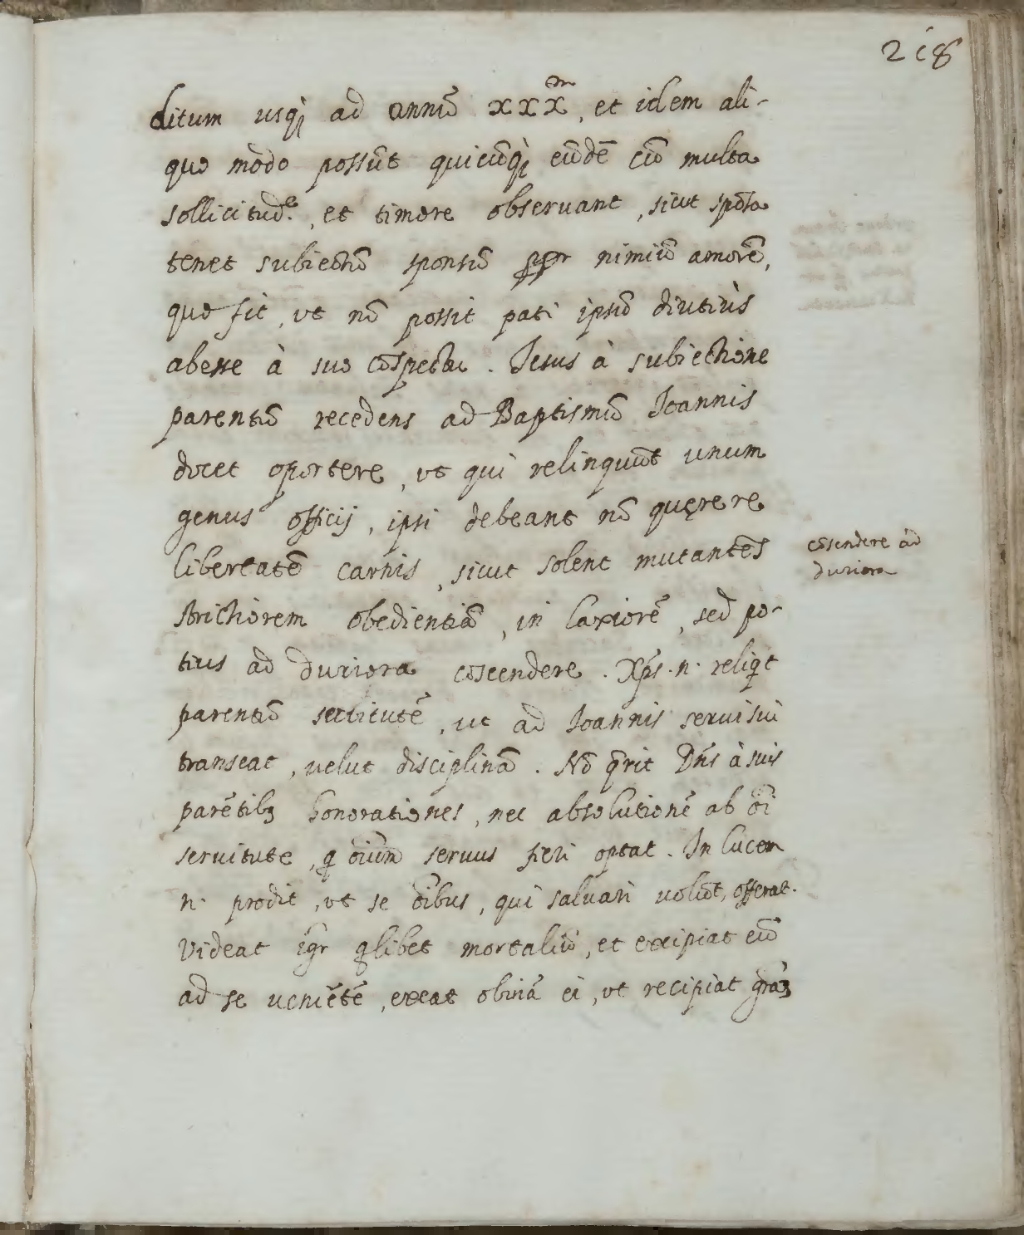 218
ditum usq; ad annũ XXX.m, et idem ali-
quo modo possũt quicũq; eũdẽ cũ multa
sollicitud.e, et timore obseruant, sicut spõsa
tenet subiectũ sponsũ nimiũ amorẽ,
quo fit, vt nõ possit pati ipsũ diutiùs
abesse à suo cõspectu. Iesus à subiectione
parentũ recedens ad Baptismũ Ioannis
docet oportere, vt qui relinquũt unum
genus officij, ipsi debeant nõ quęrere
libertatẽ carnis, sicut solent mutantes
strictiorem obedientiã, in laxiorẽ, sed po-
tius ad duriora cõscendere. Xp̃s .n. reliq̃t
parentũ seruitutẽ, ut ad Ioannis seruitiũ
transeat, uelut disciplinã. Nõ q̃rit Dñs à suis
parẽtibꝫ honorationes, nec absolutionẽ ab õi
seruitute, q̃ oĩum seruus fieri optat. In lucem
.n. prodit, vt se õibus, qui saluari uolũt, offerat.
Videat igr̃ q̃libet mortaliũ, et excipiat eũ
ad se ueniẽtẽ, exeat obuiã ei, vt recipiat gr̃aꝫ
cõscendere ad
duriora